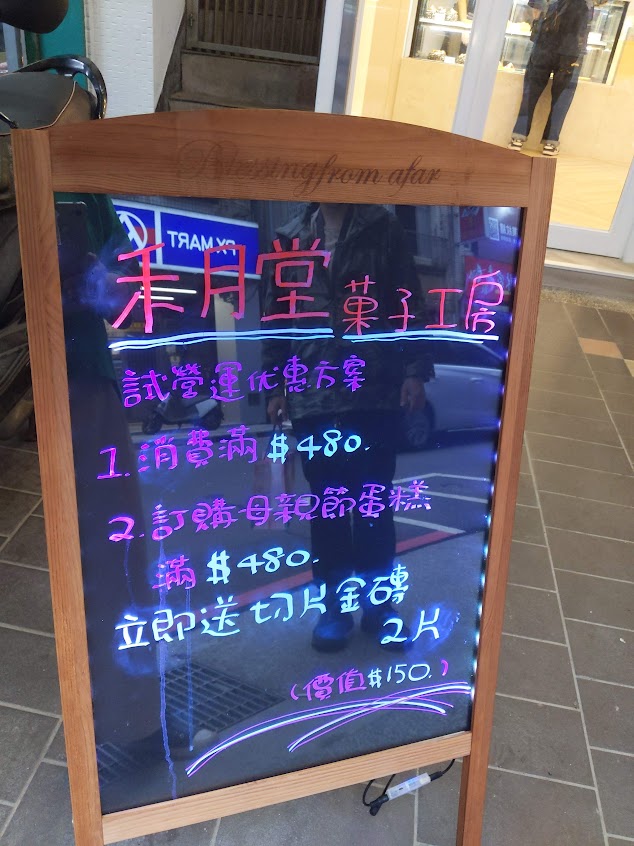 Blessing from afar
PX MART
禾月堂 菓子工房
試營運优惠方案
1.消費滿$480.
2.訂購母親節蛋糕
滿$480.
立即送切片金磚
2片
(價值$150.)